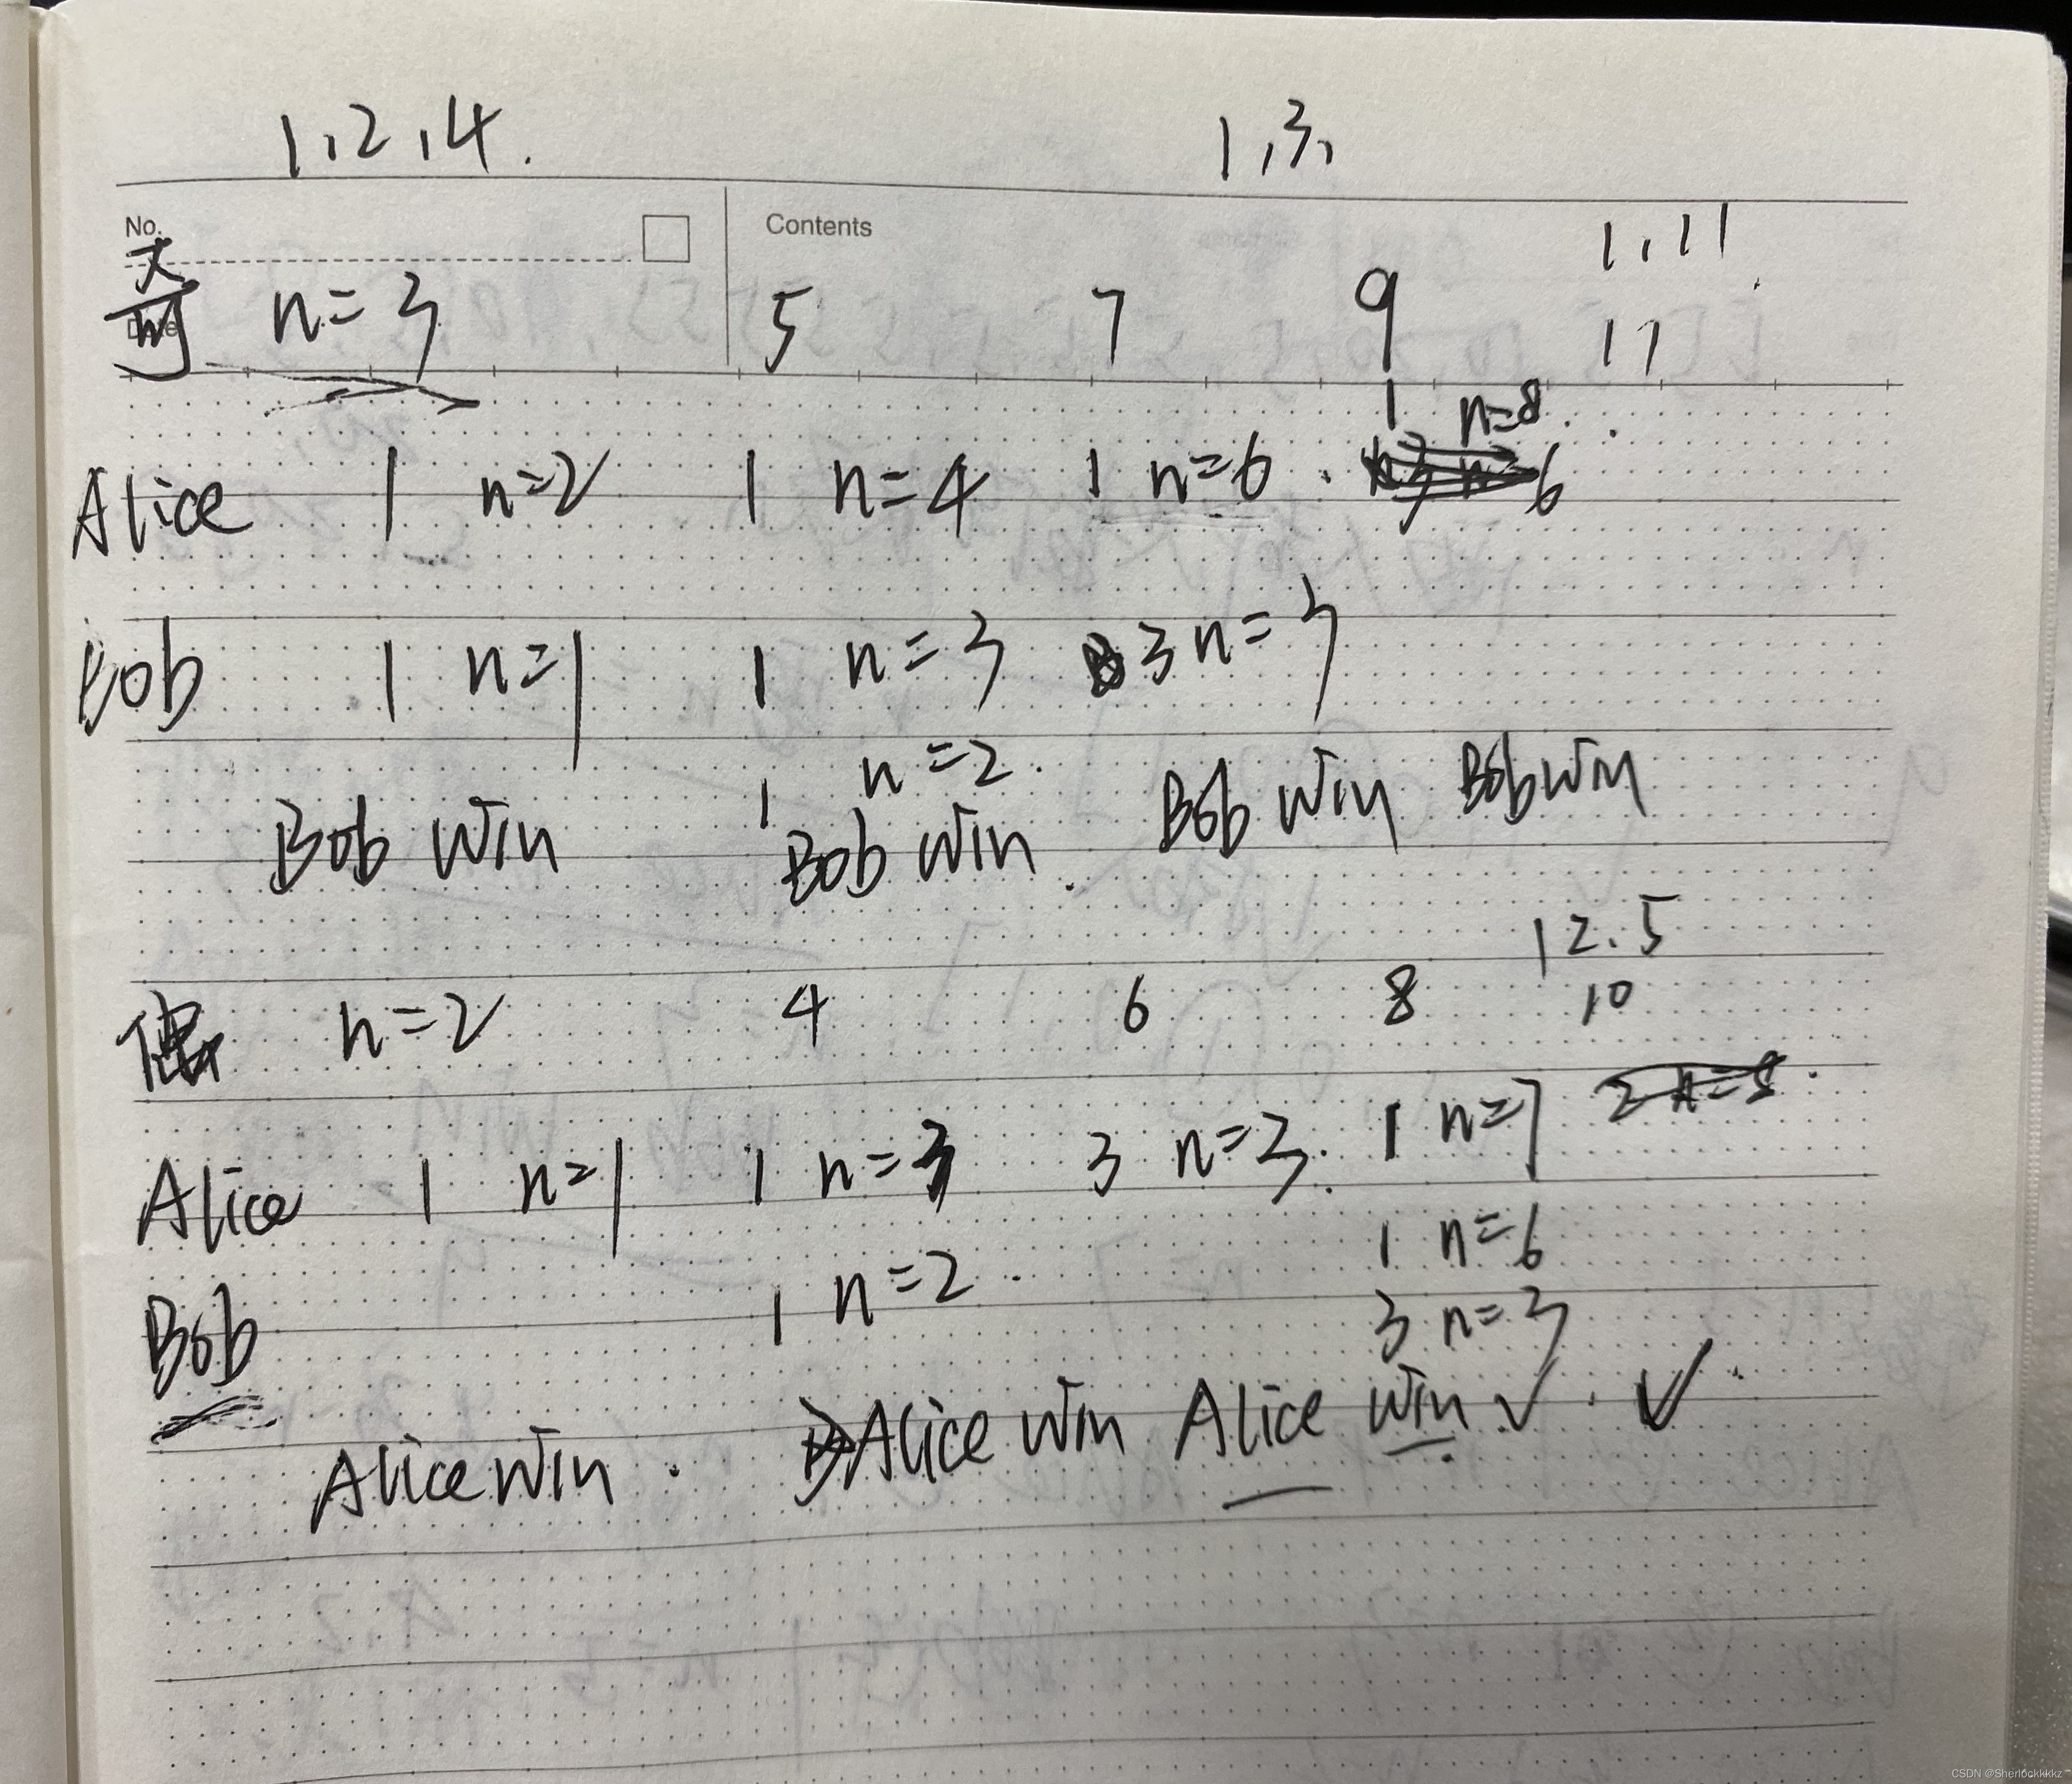 1,2,4. 1,3,
No. Contents 1,11
奇 n=3 5 7 9 11
1 n=8
Alice 1 n=2 1 n=4 1 n=6 6
Bob 1 n=1 1 n=3 3 n=3
1 n=2
Bob Win Bob Win. Bob Win Bob Win
1 2.5
偶 n=2 4 6 8 10
Alice 1 n=1 1 n=3 3 n=3. 1 n=7 2 n=8
Bob 1 n=2 1 n=6
3 n=3
Alice Win. Alice Win Alice Win ✓. ✓
CSDN @Sherlockkkkz